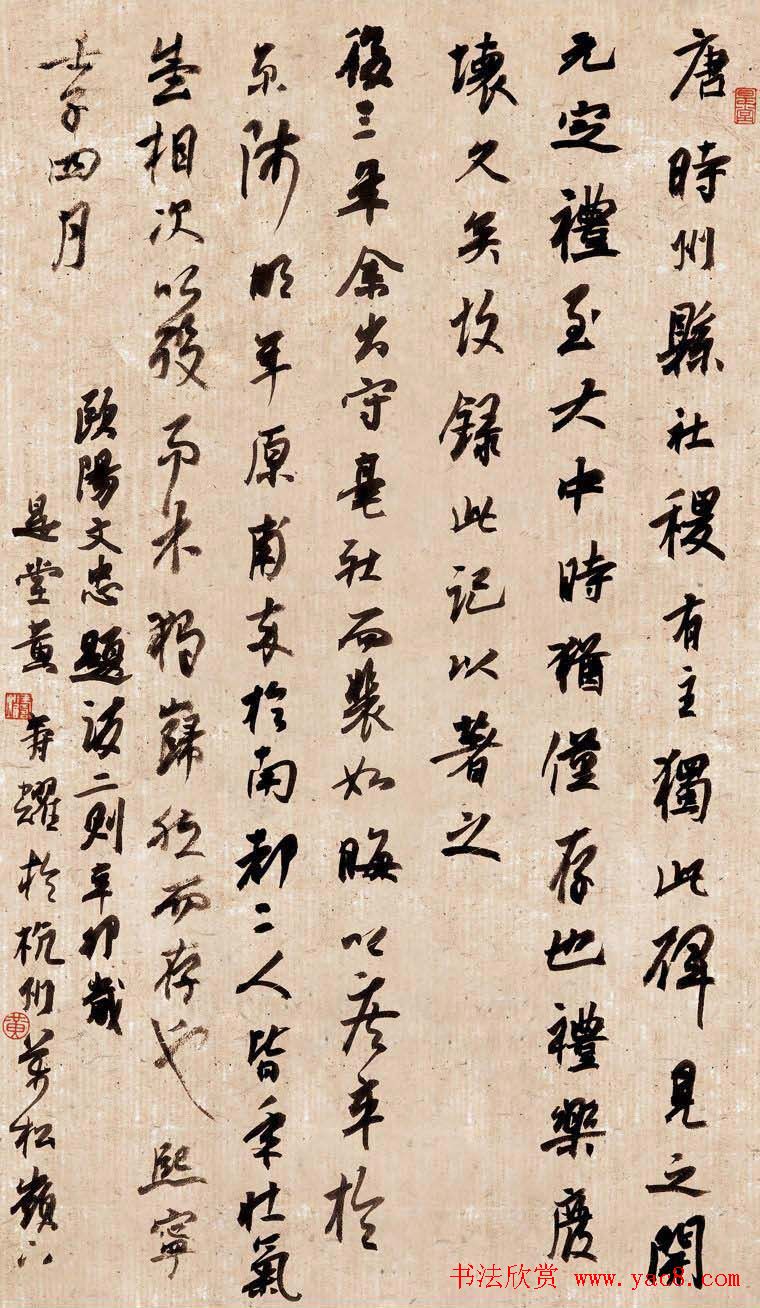 唐時州縣社稷有主獨此碑見之開
元定禮至大中時猶僅存也禮樂廢
壞久矣故録此記以著之
後三年余出守亳社而裴如晦以疾卒於
京師明年原甫卒於南都二人皆年壮氣
盛相次以殁而余独巋然而存也熙寧
壬子四月
歐陽文忠題跋二则辛卯歲
是堂黄寿耀於杭州萬松嶺下
书法欣赏 www.yac8.com